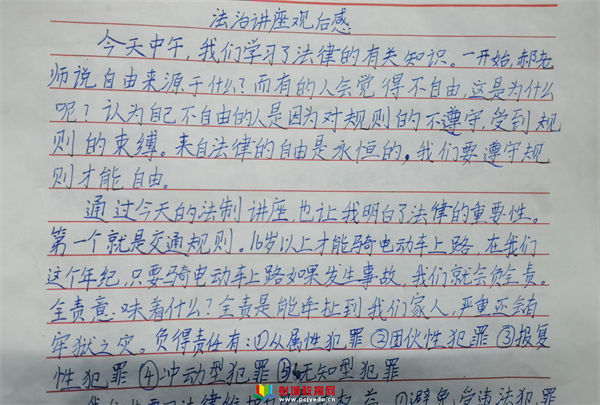 法治讲座观后感
今天中午,我们学习了法律的有关知识。一开始,郝老
师说自由来源于什么?而有的人会觉得不自由,这是为什么
呢?认为自己不自由的人是因为对规则的不遵守,受到规
则的束缚。来自法律的自由是永恒的。我们要遵守规
则才能自由。
通过今天的法制讲座,也让我明白了法律的重要性。
第一个就是交通规则。16岁以上才能骑电动车上路 在我们
这个年纪,只要骑电动车上路如果发生事故,我们就会负全责。
全责意味着什么?全责是能牵扯到我们家人,严重还会有
牢狱之灾。负得责任有:①从属性犯罪 ②团伙性犯罪 ③报复
性犯罪 ④冲动型犯罪 ⑤无知型犯罪
彭城教育网
www.pejyedu.cn